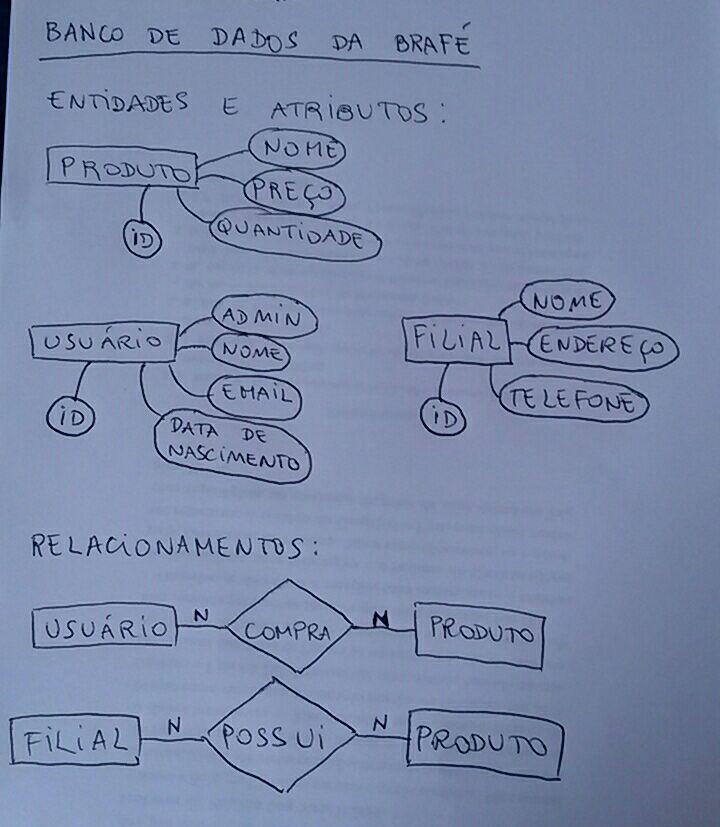 BANCO DE DADOS DA BRAFÉ
ENTIDADES E ATRIBUTOS:
PRODUTO
NOME
PREÇO
QUANTIDADE
iD
USUÁRIO
ADMIN
NOME
EMAIL
DATA DE
NASCIMENTO
iD
FILIAL
NOME
ENDEREÇO
TELEFONE
iD
RELACIONAMENTOS:
USUÁRIO N COMPRA N PRODUTO
FILIAL N POSSUI N PRODUTO